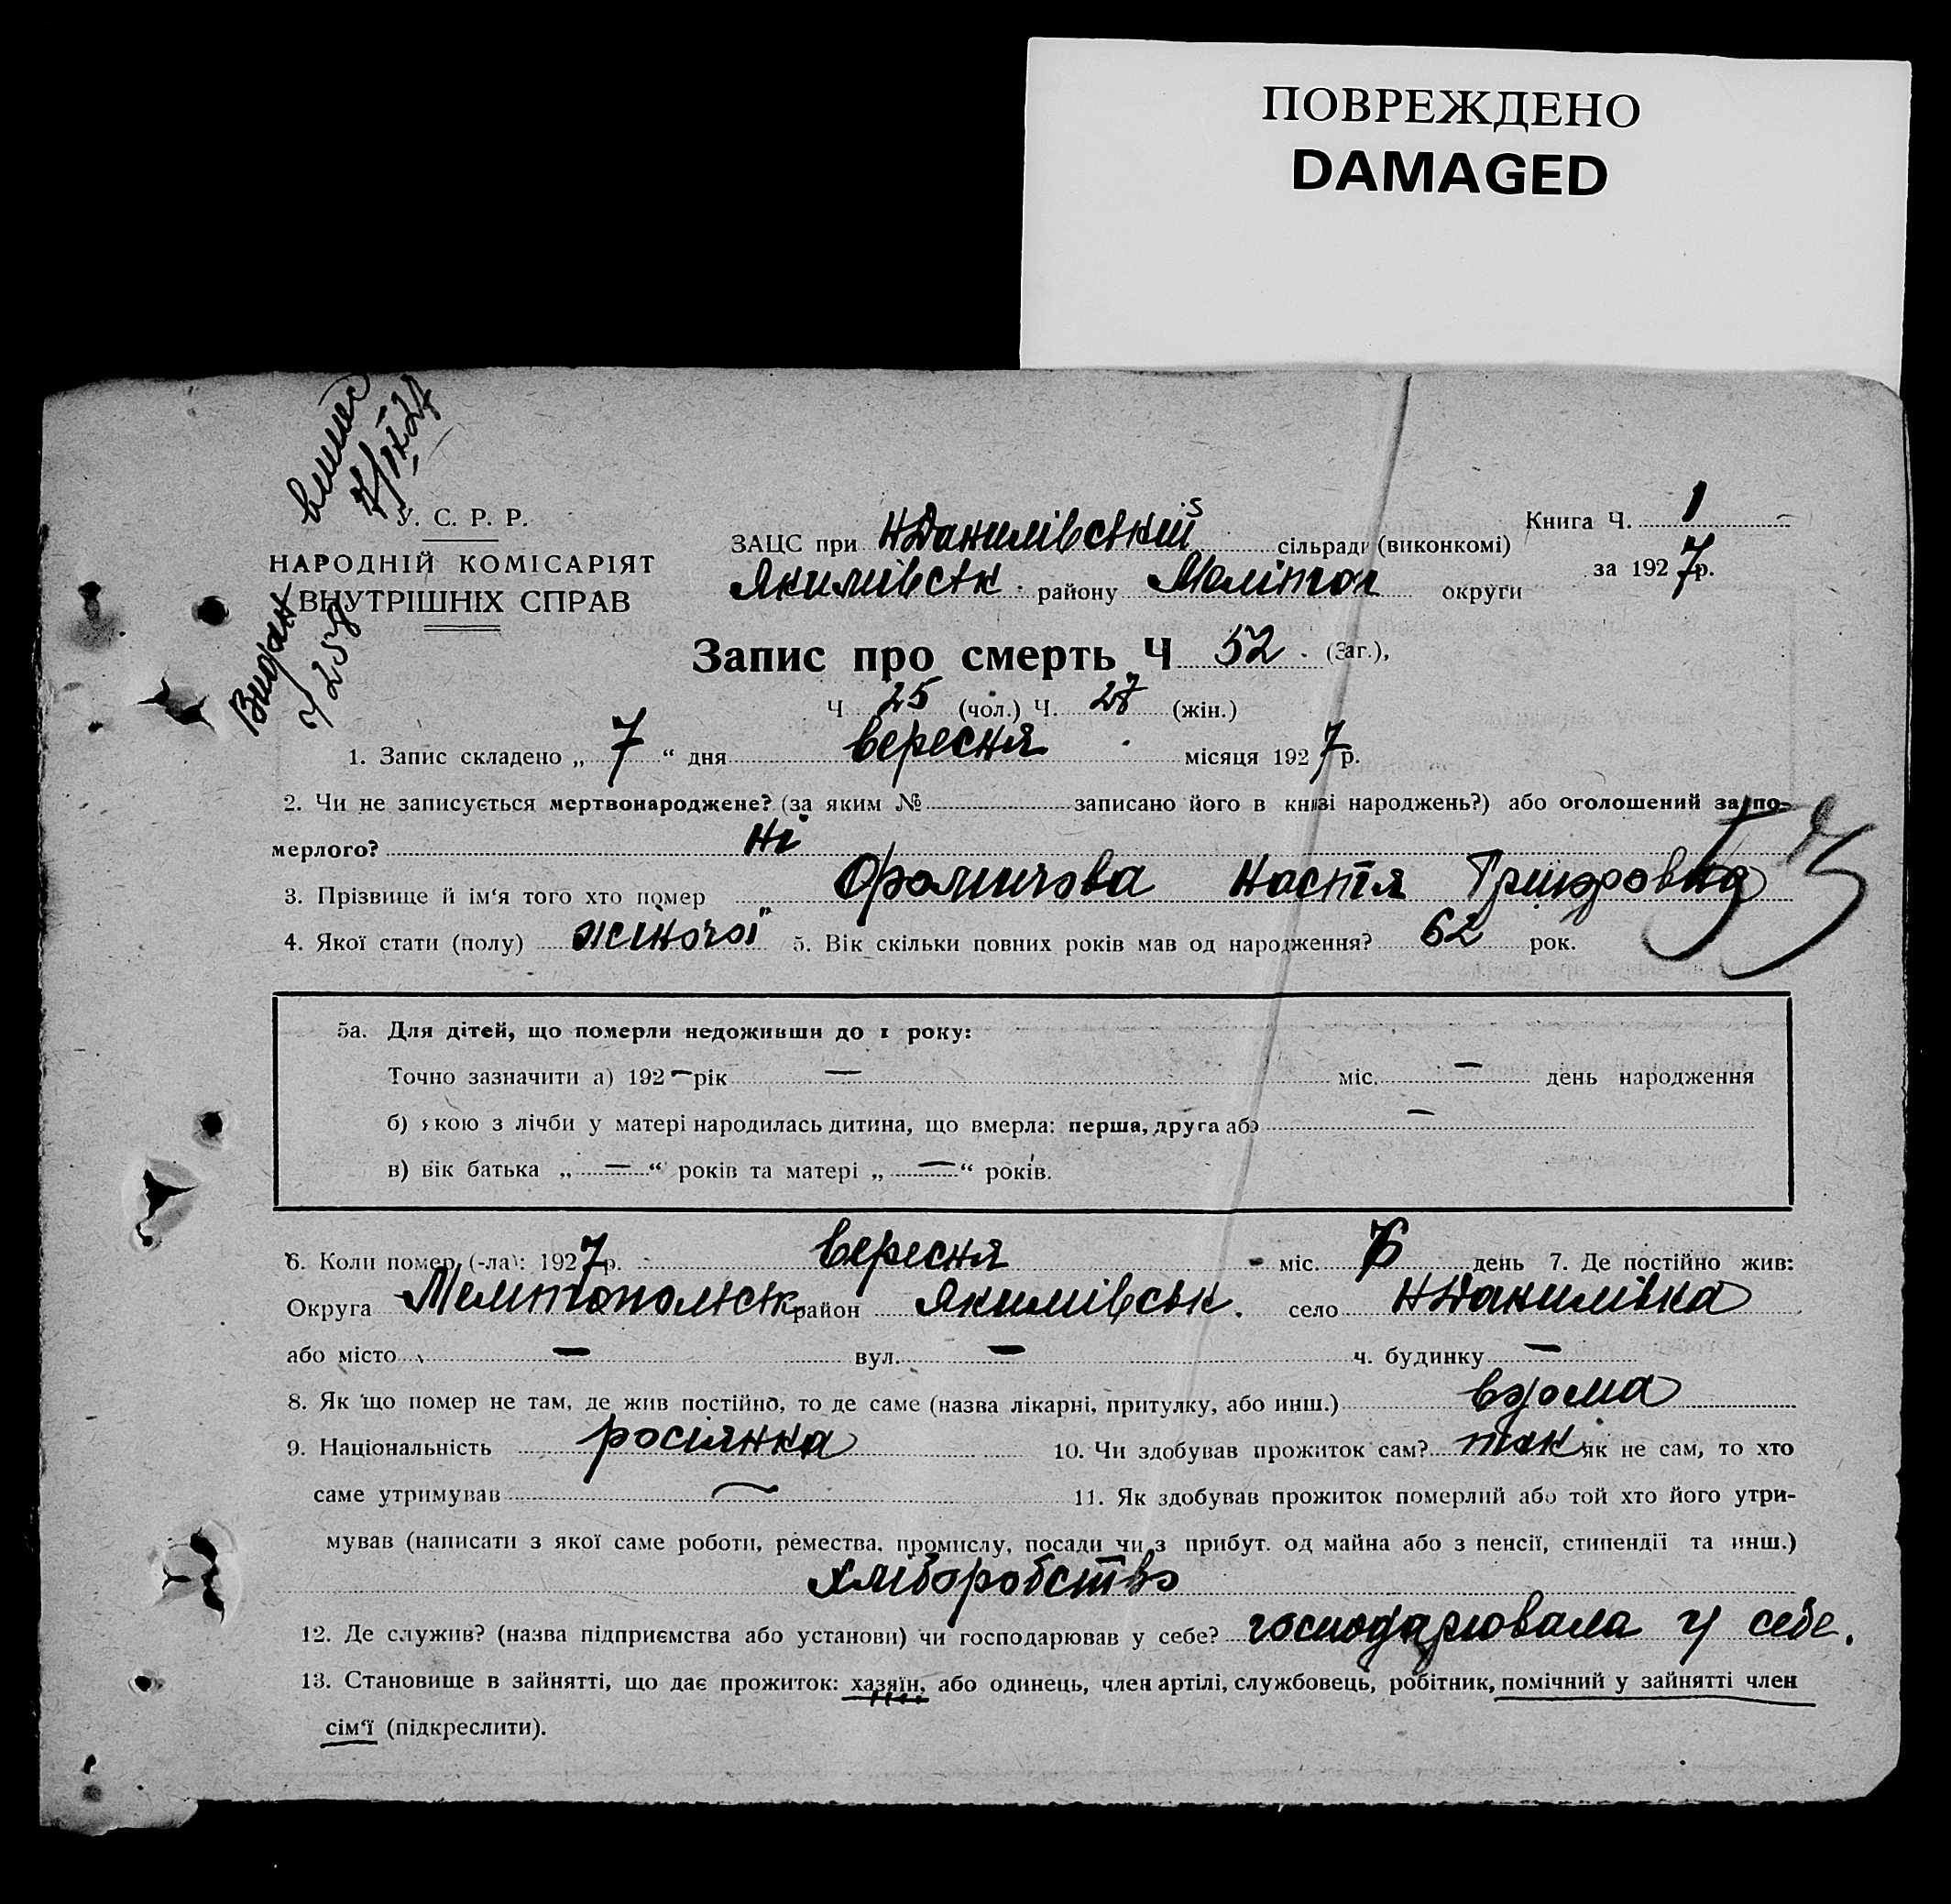 ПОВРЕЖДЕНО
DAMAGED
У. С. Р. Р.
НАРОДНІЙ КОМІСАРІЯТ
ВНУТРІШНІХ СПРАВ
Видан
Книга Ч. 1
за 1927 р.
ЗАЦС при НДанилівській сільради (виконкомі)
Якимівськ. району Меліпоп округи
Запис про смерть Ч 52. (Заг.),
Ч 25 (чол.) Ч. 27 (жін.)
1. Запис складено „ 7 “ дня вересня місяця 1927 р.
2. Чи не записується мертвонароджене? (за яким № записано його в книзі народжень?) або оголошений за по-
мерлого? ні
53
3. Прізвище й ім‘я того хто помер Фомичова Настя
4. Якої стати (полу) жіночої 5. Вік скільки повних років мав од народження? 62 рок.
5а. Для дітей, що померли недоживши до 1 року:
Точно зазначити а) 192 — рік — міс. — день народження
б) якою з лічби у матері народилась дитина, що вмерла: перша, друга або —
в) вік батька „ — “ років та матері „ — “ років.
6. Коли помер (-ла): 1927 р. вересня міс. 6 день 7. Де постійно жив:
Округа Мелітопольськ район Якимівськ. село НДанилівка
або місто — вул. — ч. будинку —
8. Як що помер не там, де жив постійно, то де саме (назва лікарні, притулку, або инш.) вдома
9. Національність росіянка 10. Чи здобував прожиток сам? так як не сам, то хто
саме утримував — 11. Як здобував прожиток померлий або той хто його утри-
мував (написати з якої саме роботи, ремества, промислу, посади чи з прибут. од майна або з пенсії, стипендії та инш.)
хліборобство
12. Де служив? (назва підприємства або установи) чи господарював у себе? господарювала у себе.
13. Становище в зайнятті, що дає прожиток: хазяїн, або одинець, член артілі, службовець, робітник, помічний у зайнятті член
сім‘ї (підкреслити).